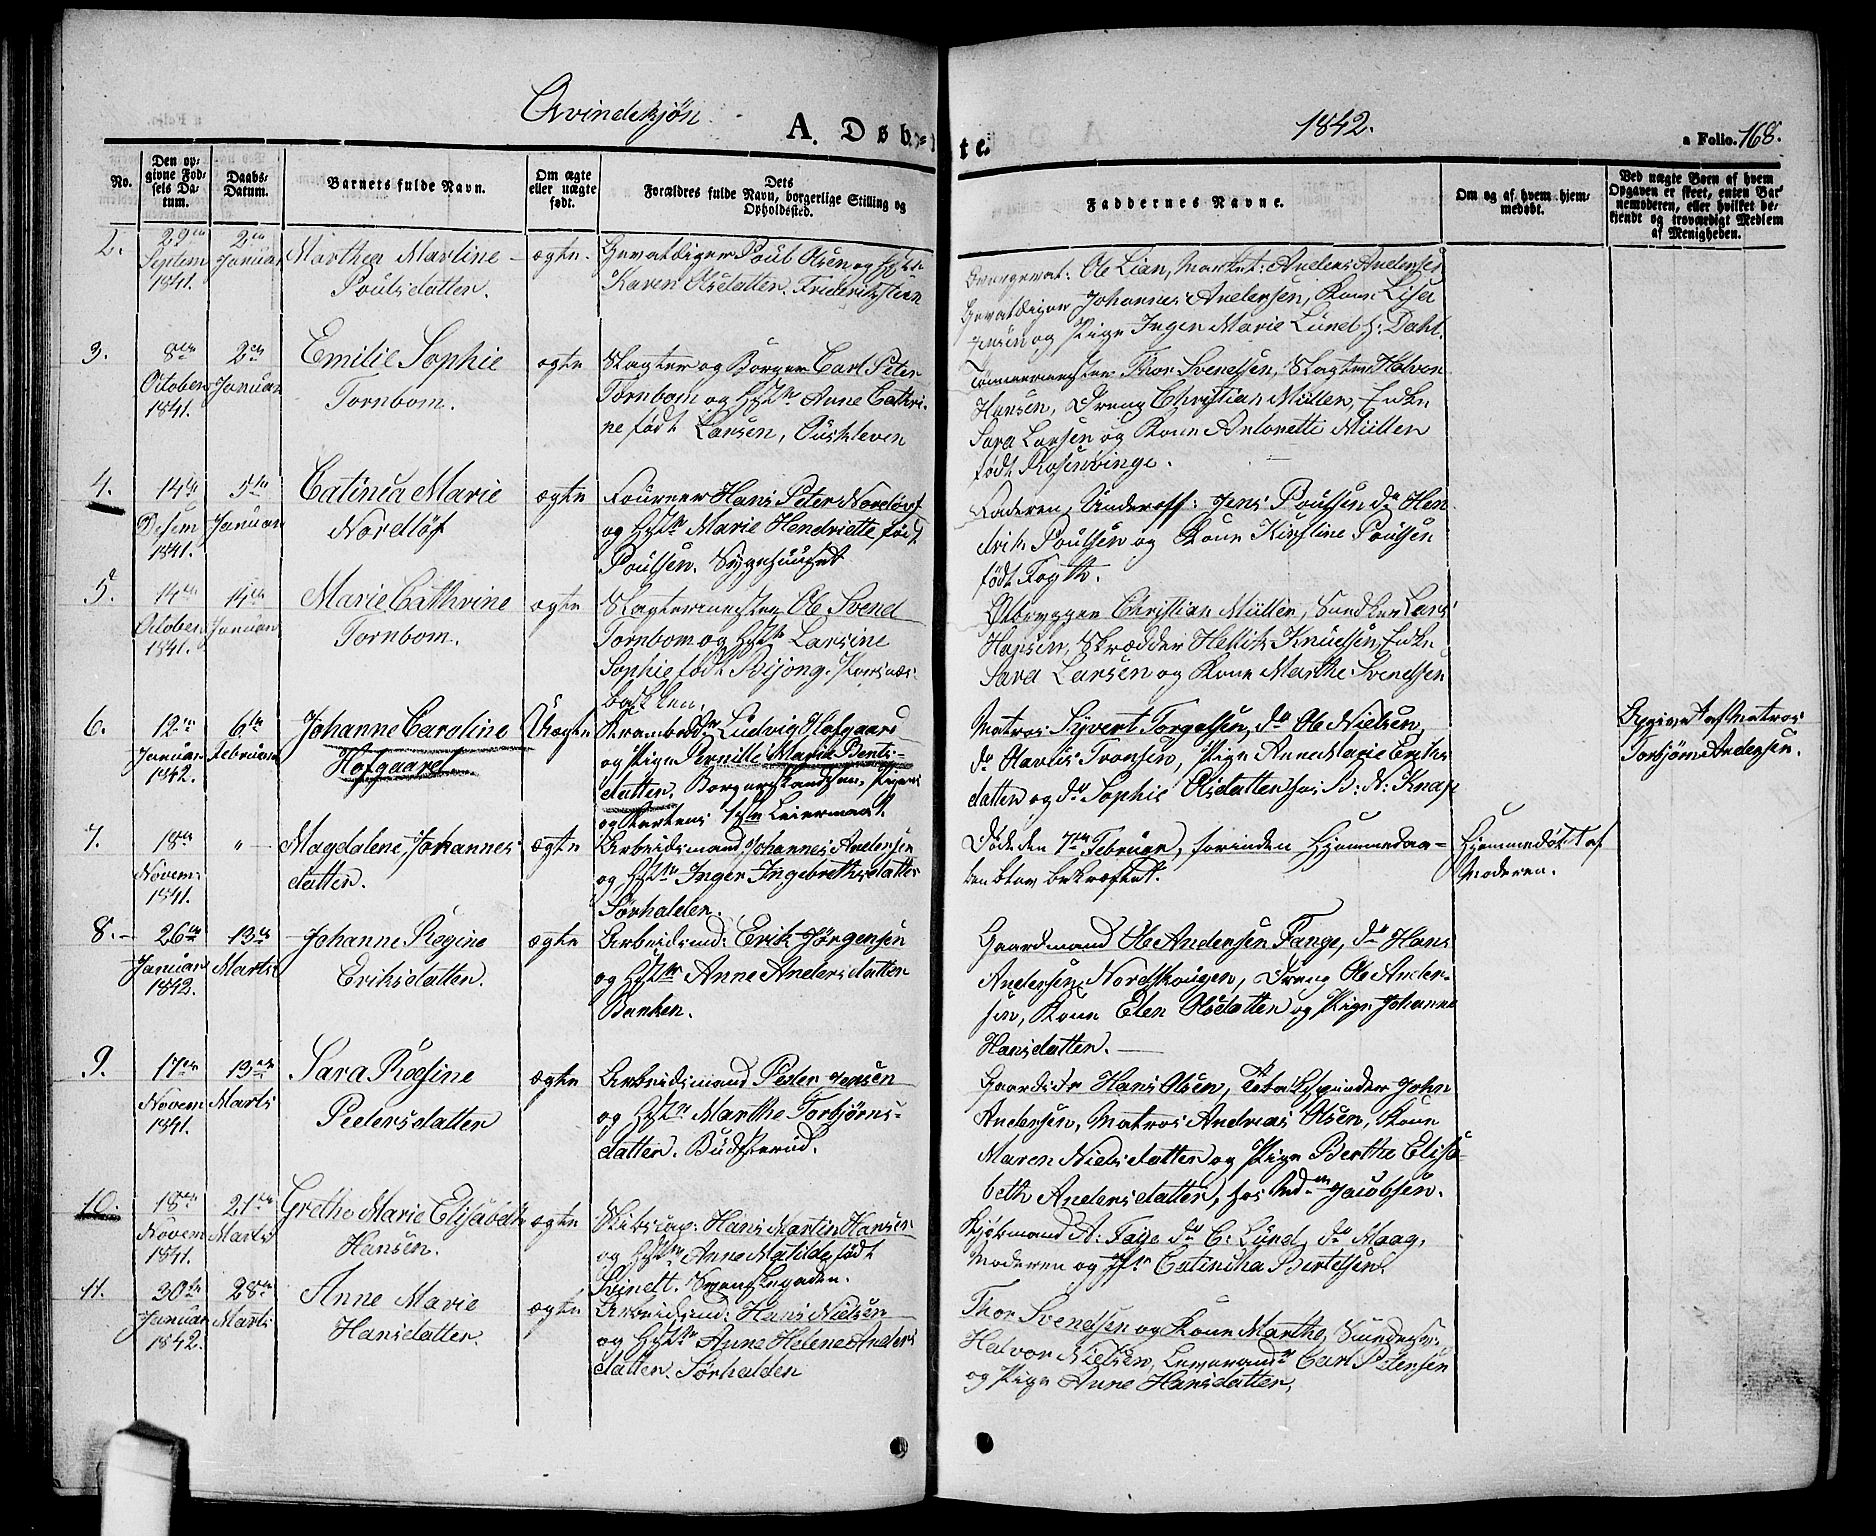 Qvindekjøn
A. Døbte.
1842.
a Folio. 168.
No.
Den opgivne Fødsels Datum.
Daabs-Datum.
Barnets fulde Navn.
Om ægte eller uægte født.
Dets Forældres fulde Navn, borgerlige Stilling og Opholdssted.
Faddernes Navne.
Om og af hvem hjemmedøbt.
Ved uægte Børn af hvem Opgaven er skeet, enten Barnemoderen, eller hvilket bekjendt og troværdigt Medlem af Menigheden.
2. 29de Septem 1841. 2den Januar Marthea Marline Poulsdatter. ægte.
Gevaldiger Poul Olsen og Hstr
Karen Olsdatter. Friderichsteen
Ole Lian, Anders Andersen
Gevaldiger Johannes Andersen, Kone Lisa
og Pige Inger Marie Lund h: Dahl.
3. 8de October 1841. 2den Januar Emilie Sophie Tornbom. ægte
Slagter og Borger Carl Peter
Tornbom og Hstr Anne Cathri-
ne født Larsen,
Tømmermester Thor Svendsen, Slagter Halvor
Hansen, Dreng Christian Müller, Enke
Sara Larsen og Kone Antonette Müller
født Rosenvinge.
4. 14de Desem 1841. 5te Januar Catinca Marie Nordløf ægte
Foureer Hans Peter Nordløf
og Hstr Marie Hendriette født
Poulsen. Sygehuuset
Faderen, Underoff: Jens Poulsen do Hen
drik Poulsen og Kone Kirstine Poulsen
født Fogth.
5. 14de October 1841. 14de Januar Marie Cathrine Tornbom. ægte
Slagtermester Ole Svend
Tornbom og Hstr Larsine
Sophie født Bijong.
bakken.
Ølbrygger Christian Müller, Snedker Lars
Hansen, Skrædder Hellik Knudsen, Enke
Sara Larsen og Kone Marthe Svendsen
6. 12te Januar 1842. 6te Februar Johanne Caroline Hofgaard Uægte
Krambodr Ludvig Hofgaard
og Pige Pernille Maria Bents-
datter. Borgerskandsen, Piges
og Karlens 1ste Leiermaal.
Matros Syvert Torgelsen, do Ole Nielsen,
do Havlis Tronsen, Pige Anne Marie Eriks
datter og do Sophie Olsdatter hos B: N: Knap
Opgivet af Matros
Torbjørn Andersen.
7. 18de Novem 1841. " - Magdalene Johannes datter. ægte
Arbeidsmand Johannes Andersen
og Hstr Inger Ingebrethsdatter
Sørhalden.
Døde den 7de Februar, forinden Hjemmedaa-
ben blev bekræftet.
Hjemmedøbt af
Moderen.
8. - 26de Januar 1842. 13de Marts Johanne Regine Eriksdatter. ægte
Arbeidsmd: Erik Jørgensen
og Hstr Anne Andersdatter
Banken.
Gaardmand Ole Andersen Fange, do Hans
Andersen Nordskougen, Dreng Ole Ander-
sen, Kone Elen Olsdatter og Pige Johanne
Hansdatter.
9. 17de Novem 1841. 13de Marts Sara Rosine Pedersdatter ægte
Arbeidsmand Peder Jensen
og Hstr Marthe Torbjørns-
datter. Budsterud.
Gaardbr Hans Olsen, Tobakspinder John
Andersen, Matros Andreas Olsen, Kone
Maren Nielsdatter og Pige Berthe Elisa
beth Andersdatter, hos Md. Jacobsen.
10. 18de Novem 1841. 21de Marts Grethe Marie Elisabeth Hansen. ægte
Skibscap: Hans Martin Hansen
og Hstr Anne Matilde født
Svinett. Svenskegaden.
Kjøbmand A: Faye do C: Lund, do Maag,
Moderen og Jfr Catincka Bertelsen.
11. 30te Januar 1842. 28de Marts Anne Marie Hansdatter. ægte
Arbeidsmd: Hans Nielsen
og Hstr Anne Helene Anders
datter. Sørhalden
Thor Svendsen og Kone Marthe,
Halvor Nielsen, Carl Petersen
og Pige Anne Hansdatter.